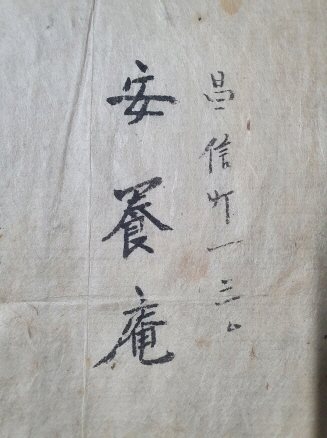 昌信町一三〇
安養庵